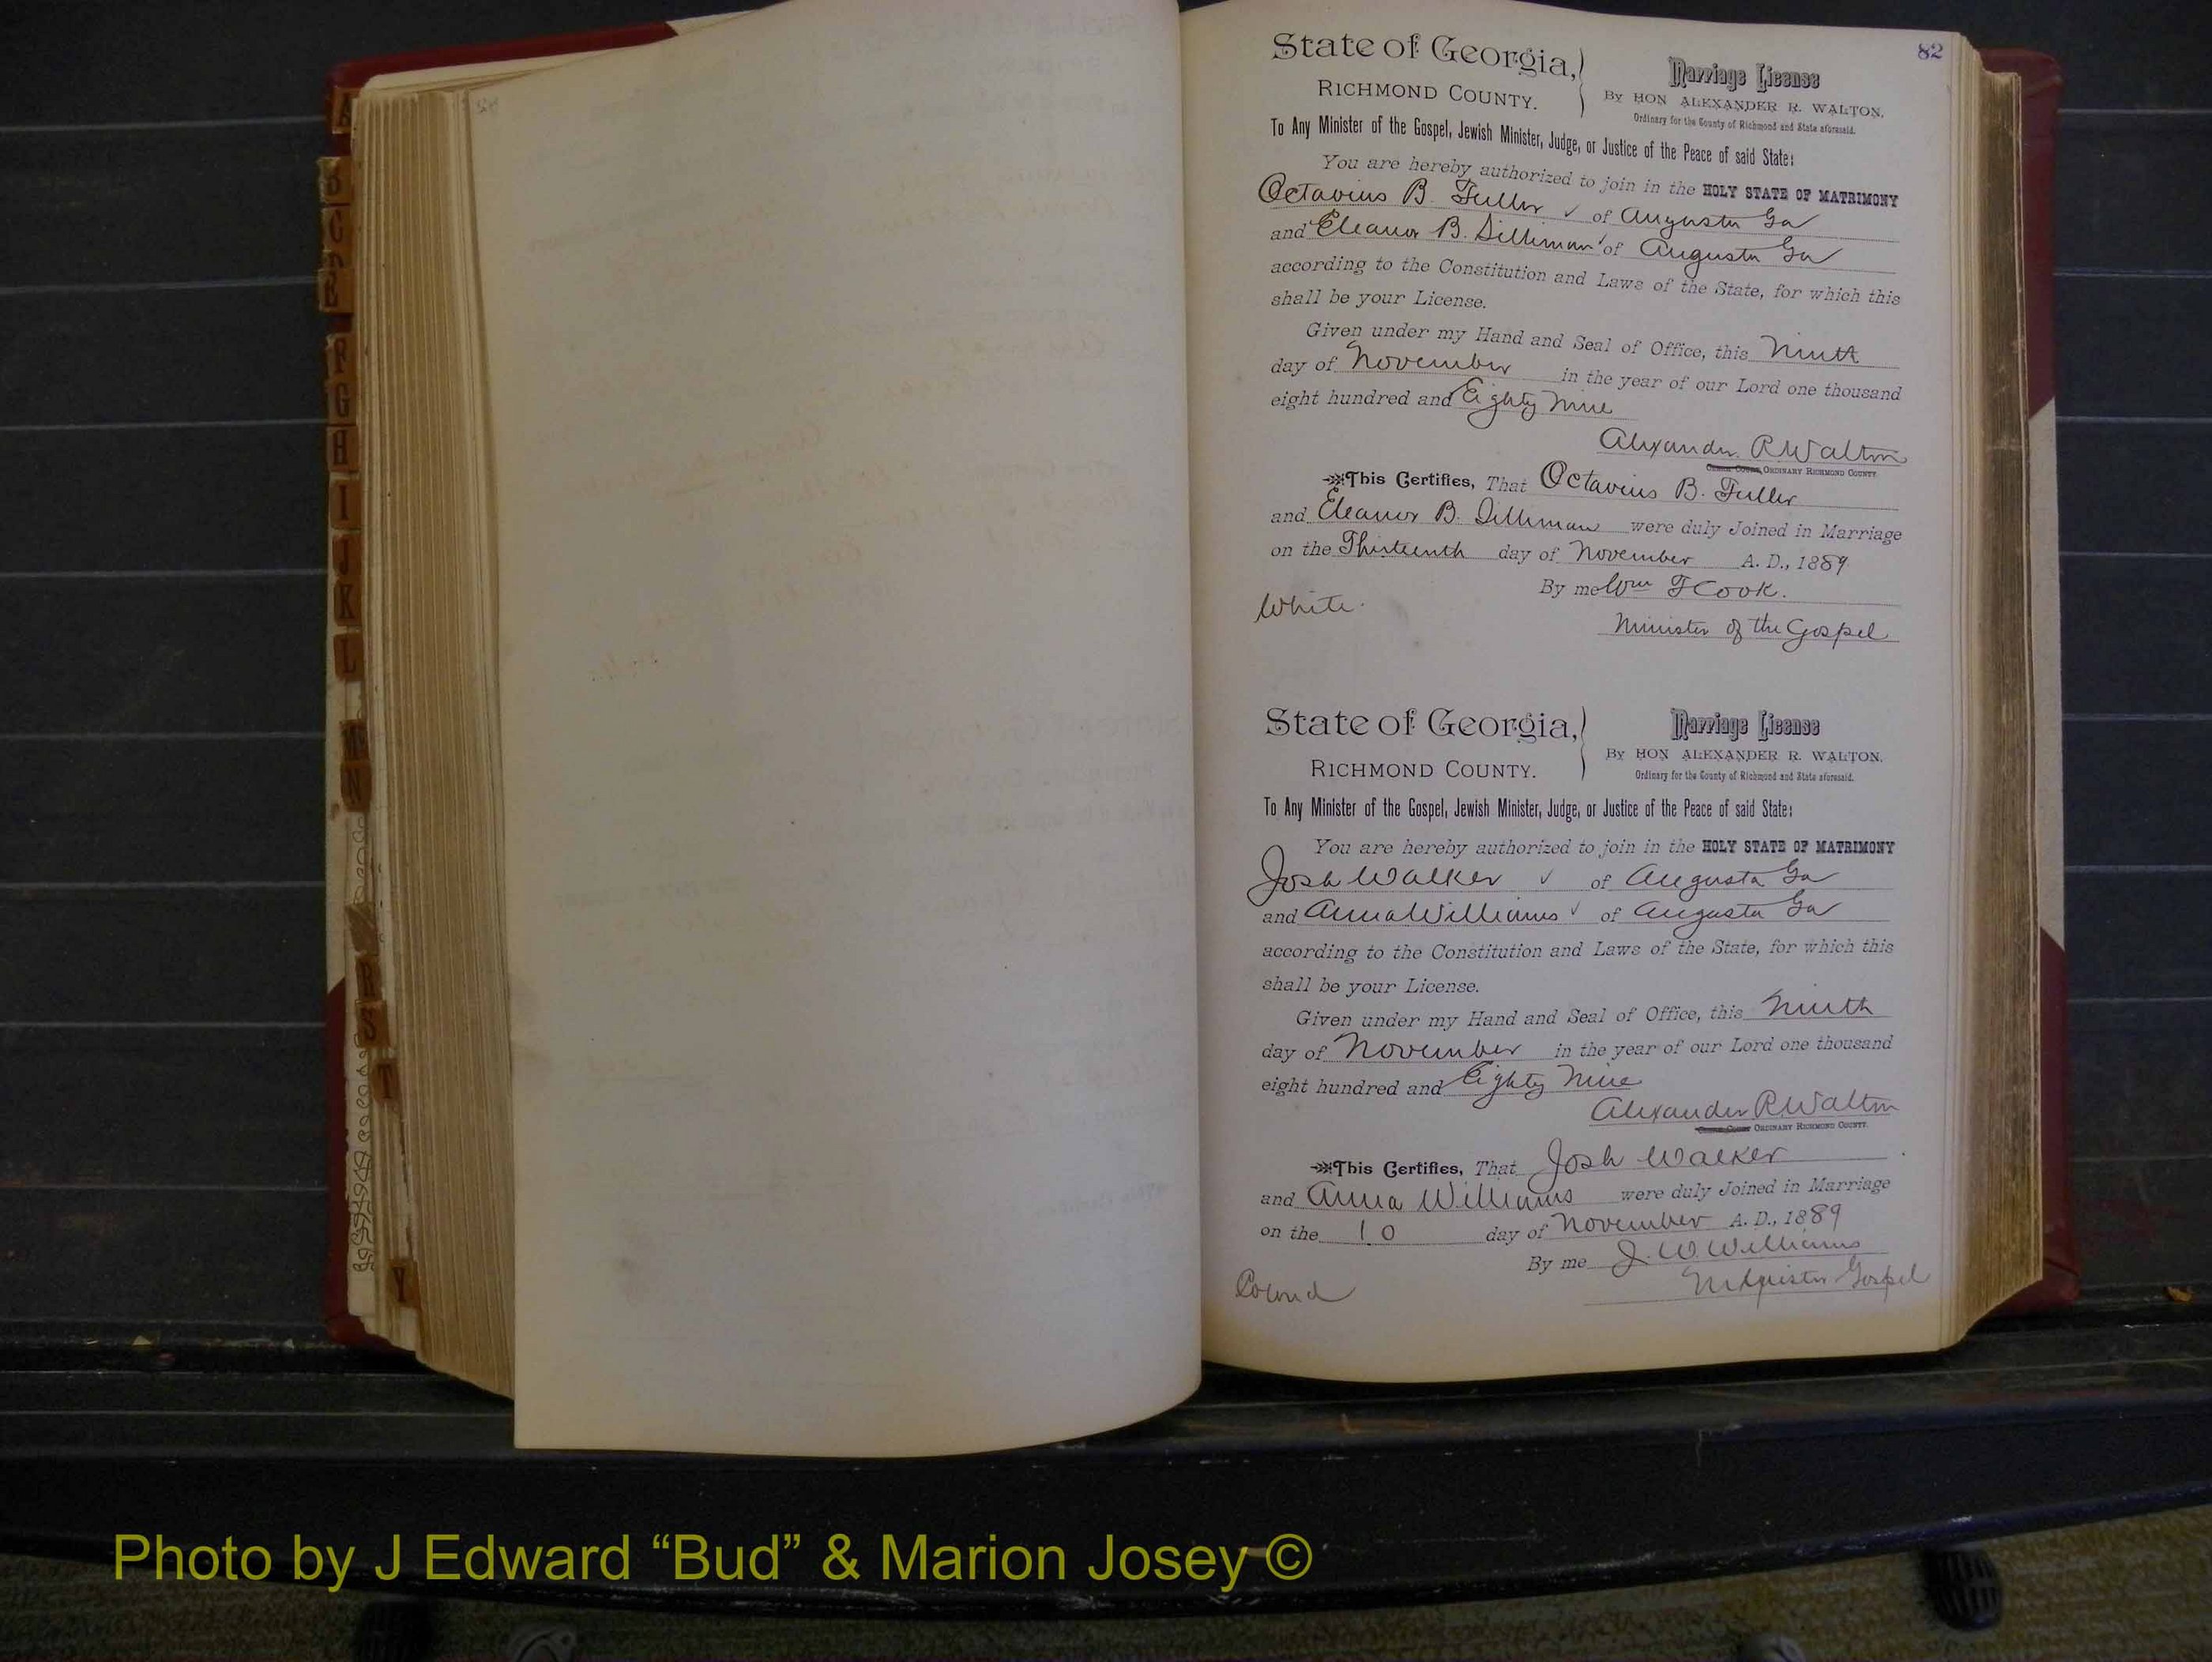 A
B
C
D
E
F
G
H
I
J
K
L
M
N
R
S
T
Y
82
State of Georgia,
RICHMOND COUNTY.
Marriage License
By HON ALEXANDER R. WALTON.
Ordinary for the County of Richmond and State aforesaid.
To Any Minister of the Gospel, Jewish Minister, Judge, or Justice of the Peace of said State:
You are hereby authorized to join in the HOLY STATE OF MATRIMONY
Octavius B. Fuller ✓ of Augusta Ga
and Eleanor B. Silliman ✓ of Augusta Ga
according to the Constitution and Laws of the State, for which this
shall be your License.
Given under my Hand and Seal of Office, this Ninth
day of November in the year of our Lord one thousand
eight hundred and Eighty Nine
Alexander R Walton
ORDINARY RICHMOND COUNTY.
This Certifies, That Octavius B. Fuller
and Eleanor B. Silliman were duly Joined in Marriage
on the Thirteenth day of November A. D., 1889
By me Wm F Cook.
White.
Minister of the Gospel
State of Georgia,
RICHMOND COUNTY.
Marriage License
By HON ALEXANDER R. WALTON.
Ordinary for the County of Richmond and State aforesaid.
To Any Minister of the Gospel, Jewish Minister, Judge, or Justice of the Peace of said State:
You are hereby authorized to join in the HOLY STATE OF MATRIMONY
Josh Walker ✓ of Augusta Ga
and Anna Williams ✓ of Augusta Ga
according to the Constitution and Laws of the State, for which this
shall be your License.
Given under my Hand and Seal of Office, this Ninth
day of November in the year of our Lord one thousand
eight hundred and Eighty Nine
Alexander R Walton
ORDINARY RICHMOND COUNTY.
This Certifies, That Josh Walker
and Anna Williams were duly Joined in Marriage
on the 10 day of November A. D., 1889
By me J. W. Williams
Gospel
Photo by J Edward “Bud” & Marion Josey ©